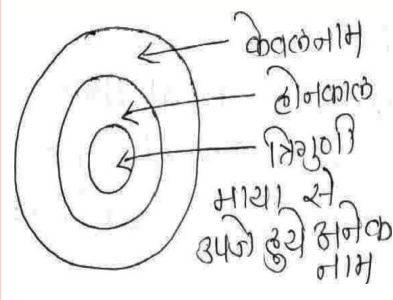 केवलनाम
होनकाल
त्रिगुणी
माया से
उपजे हुये अनेक
नाम